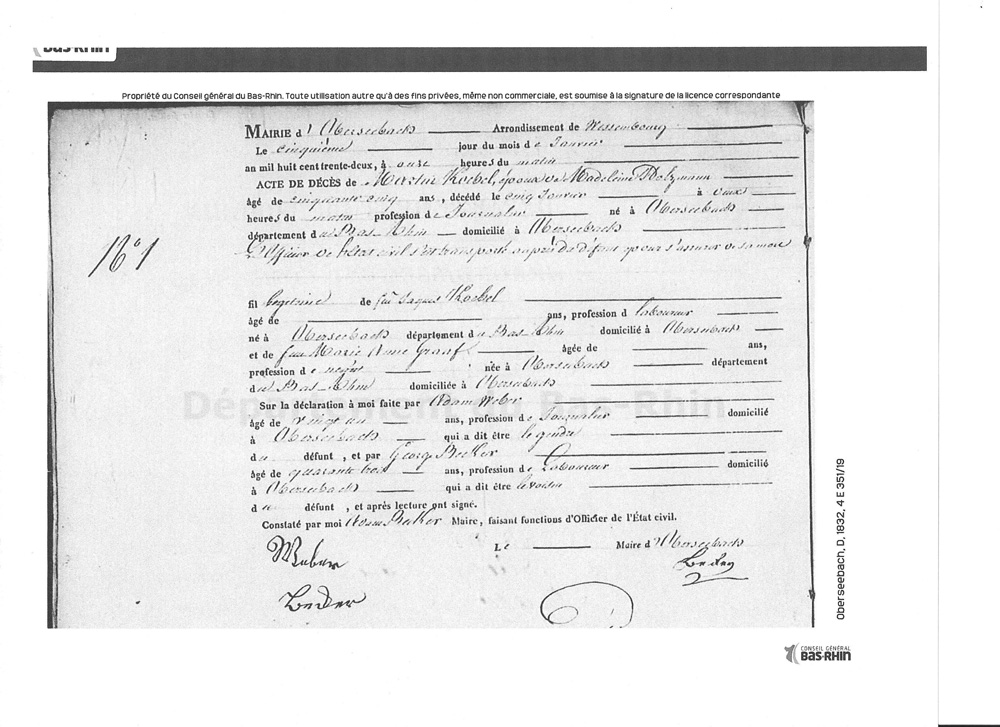 Bas-Rhin
Propriété du Conseil général du Bas-Rhin. Toute utilisation autre qu'à des fins privées, même non commerciale, est soumise à la signature de la licence correspondante
MAIRIE d' Oberseebach Arrondissement de Wissembourg
Le cinquième jour du mois de Janvier
an mil huit cent trente-deux, à onze heures du matin
ACTE DE DÉCÈS de Martin Koebel, époux de Madeleine
âgé de cinquante cinq ans, décédé le cinq Janvier à
heures du matin profession de Journalier né à Oberseebach
département du Bas-Rhin domicilié à Oberseebach
L'Officier de l'état civil s'est transporté auprès du défunt pour s'assurer de sa mort
N° 1
fil légitime de feu Jaques Koebel
âgé de ans, profession d laboureur
né à Oberseebach département du Bas-Rhin domicilié à Oberseebach
et de feue Marie Anne Graaf âgée de ans,
profession d née à Oberseebach département
du Bas-Rhin domiciliée à Oberseebach
Département du Bas-Rhin
Sur la déclaration à moi faite par Adam Weber
âgé de vingt un ans, profession de Journalier domicilié
à Oberseebach qui a dit être le gendre
du défunt, et par George Becker
âgé de quarante trois ans, profession de Laboureur domicilié
à Oberseebach qui a dit être le voisin
du défunt, et après lecture ont signé.
Constaté par moi Becker Maire, faisant fonctions d'Officier de l'État civil.
Le Maire d'Oberseebach
Weber
Becker
Becker
Oberseebach, D, 1832, 4 E 351/19
CONSEIL GÉNÉRAL
BAS-RHIN